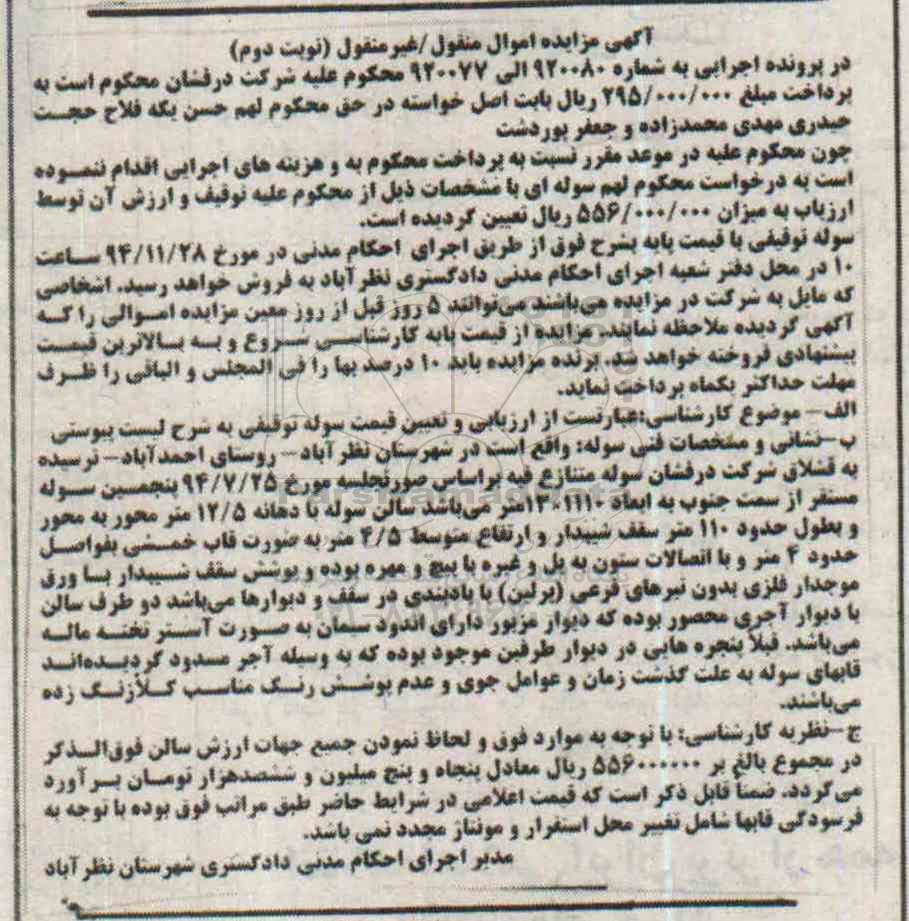 آگهی مزایده اموال منقول/غیرمنقول (نوبت دوم)
در پرونده اجرایی به شماره ۹۲۰۰۸۰ الی ۹۲۰۰۷۷ محکوم علیه شرکت درفشان محکوم است به
پرداخت مبلغ ۲۹۵/۰۰۰/۰۰۰ ریال بابت اصل خواسته در حق محکوم لهم حسن یکه فلاح حجت
حیدری مهدی محمدزاده و جعفر پوردشت
چون محکوم علیه در موعد مقرر نسبت به پرداخت محکوم به و هزینه های اجرایی اقدام ننموده
است به درخواست محکوم لهم سوله ای با مشخصات ذیل از محکوم علیه توقیف و ارزش آن توسط
ارزیاب به میزان ۵۵۶/۰۰۰/۰۰۰ ریال تعیین گردیده است.
سوله توقیفی با قیمت پایه بشرح فوق از طریق اجرای احکام مدنی در مورخ ۹۴/۱۱/۲۸ ساعت
۱۰ در محل دفتر شعبه اجرای احکام مدنی دادگستری نظرآباد به فروش خواهد رسید. اشخاصی
که مایل به شرکت در مزایده می‌باشند می‌توانند ۵ روز قبل از روز معین مزایده اموالی را که
آگهی گردیده ملاحظه نمایند. مزایده از قیمت پایه کارشناسی شروع و به بالاترین قیمت
پیشنهادی فروخته خواهد شد. برنده مزایده باید ۱۰ درصد بها را فی المجلس و الباقی را ظرف
مهلت حداکثر یکماه پرداخت نماید.
الف- موضوع کارشناسی:عبارتست از ارزیابی و تعیین قیمت سوله توقیفی به شرح لیست پیوستی
ب-نشانی و مشخصات فنی سوله: واقع است در شهرستان نظرآباد- روستای احمدآباد- نرسیده
به قشلاق شرکت درفشان سوله متنازع فیه براساس صورتجلسه مورخ ۹۴/۷/۲۵ پنجمین سوله
مستقر از سمت جنوب به ابعاد ۱۱۱۰*۱۳متر می‌باشد سالن سوله با دهانه ۱۲/۵ متر محور به محور
و بطول حدود ۱۱۰ متر سقف شیبدار و ارتفاع متوسط ۴/۵ متر به صورت قاب خمشی بفواصل
حدود ۴ متر و با اتصالات ستون به پل و غیره با پیچ و مهره بوده و پوشش سقف شیبدار با ورق
موجدار فلزی بدون تیرهای فرعی (پرلین) با بادبندی در سقف و دیوارها می‌باشد دو طرف سالن
با دیوار آجری محصور بوده که دیوار مزبور دارای اندود سیمان به صورت آستر تخته ماله
می‌باشد. قبلاً پنجره هایی در دیوار طرفین موجود بوده که به وسیله آجر مسدود گردیده‌اند
قابهای سوله به علت گذشت زمان و عوامل جوی و عدم پوشش رنگ مناسب کلاً زنگ زده
می‌باشند.
ج-نظریه کارشناسی: با توجه به موارد فوق و لحاظ نمودن جمیع جهات ارزش سالن فوق‌الذکر
در مجموع بالغ بر ۵۵۶۰۰۰۰۰۰ ریال معادل پنجاه و پنج میلیون و ششصدهزار تومان برآورد
می‌گردد. ضمناً قابل ذکر است که قیمت اعلامی در شرایط حاضر طبق مراتب فوق بوده با توجه به
فرسودگی قابها شامل تغییر محل استقرار و مونتاژ مجدد نمی باشد.
مدیر اجرای احکام مدنی دادگستری شهرستان نظرآباد